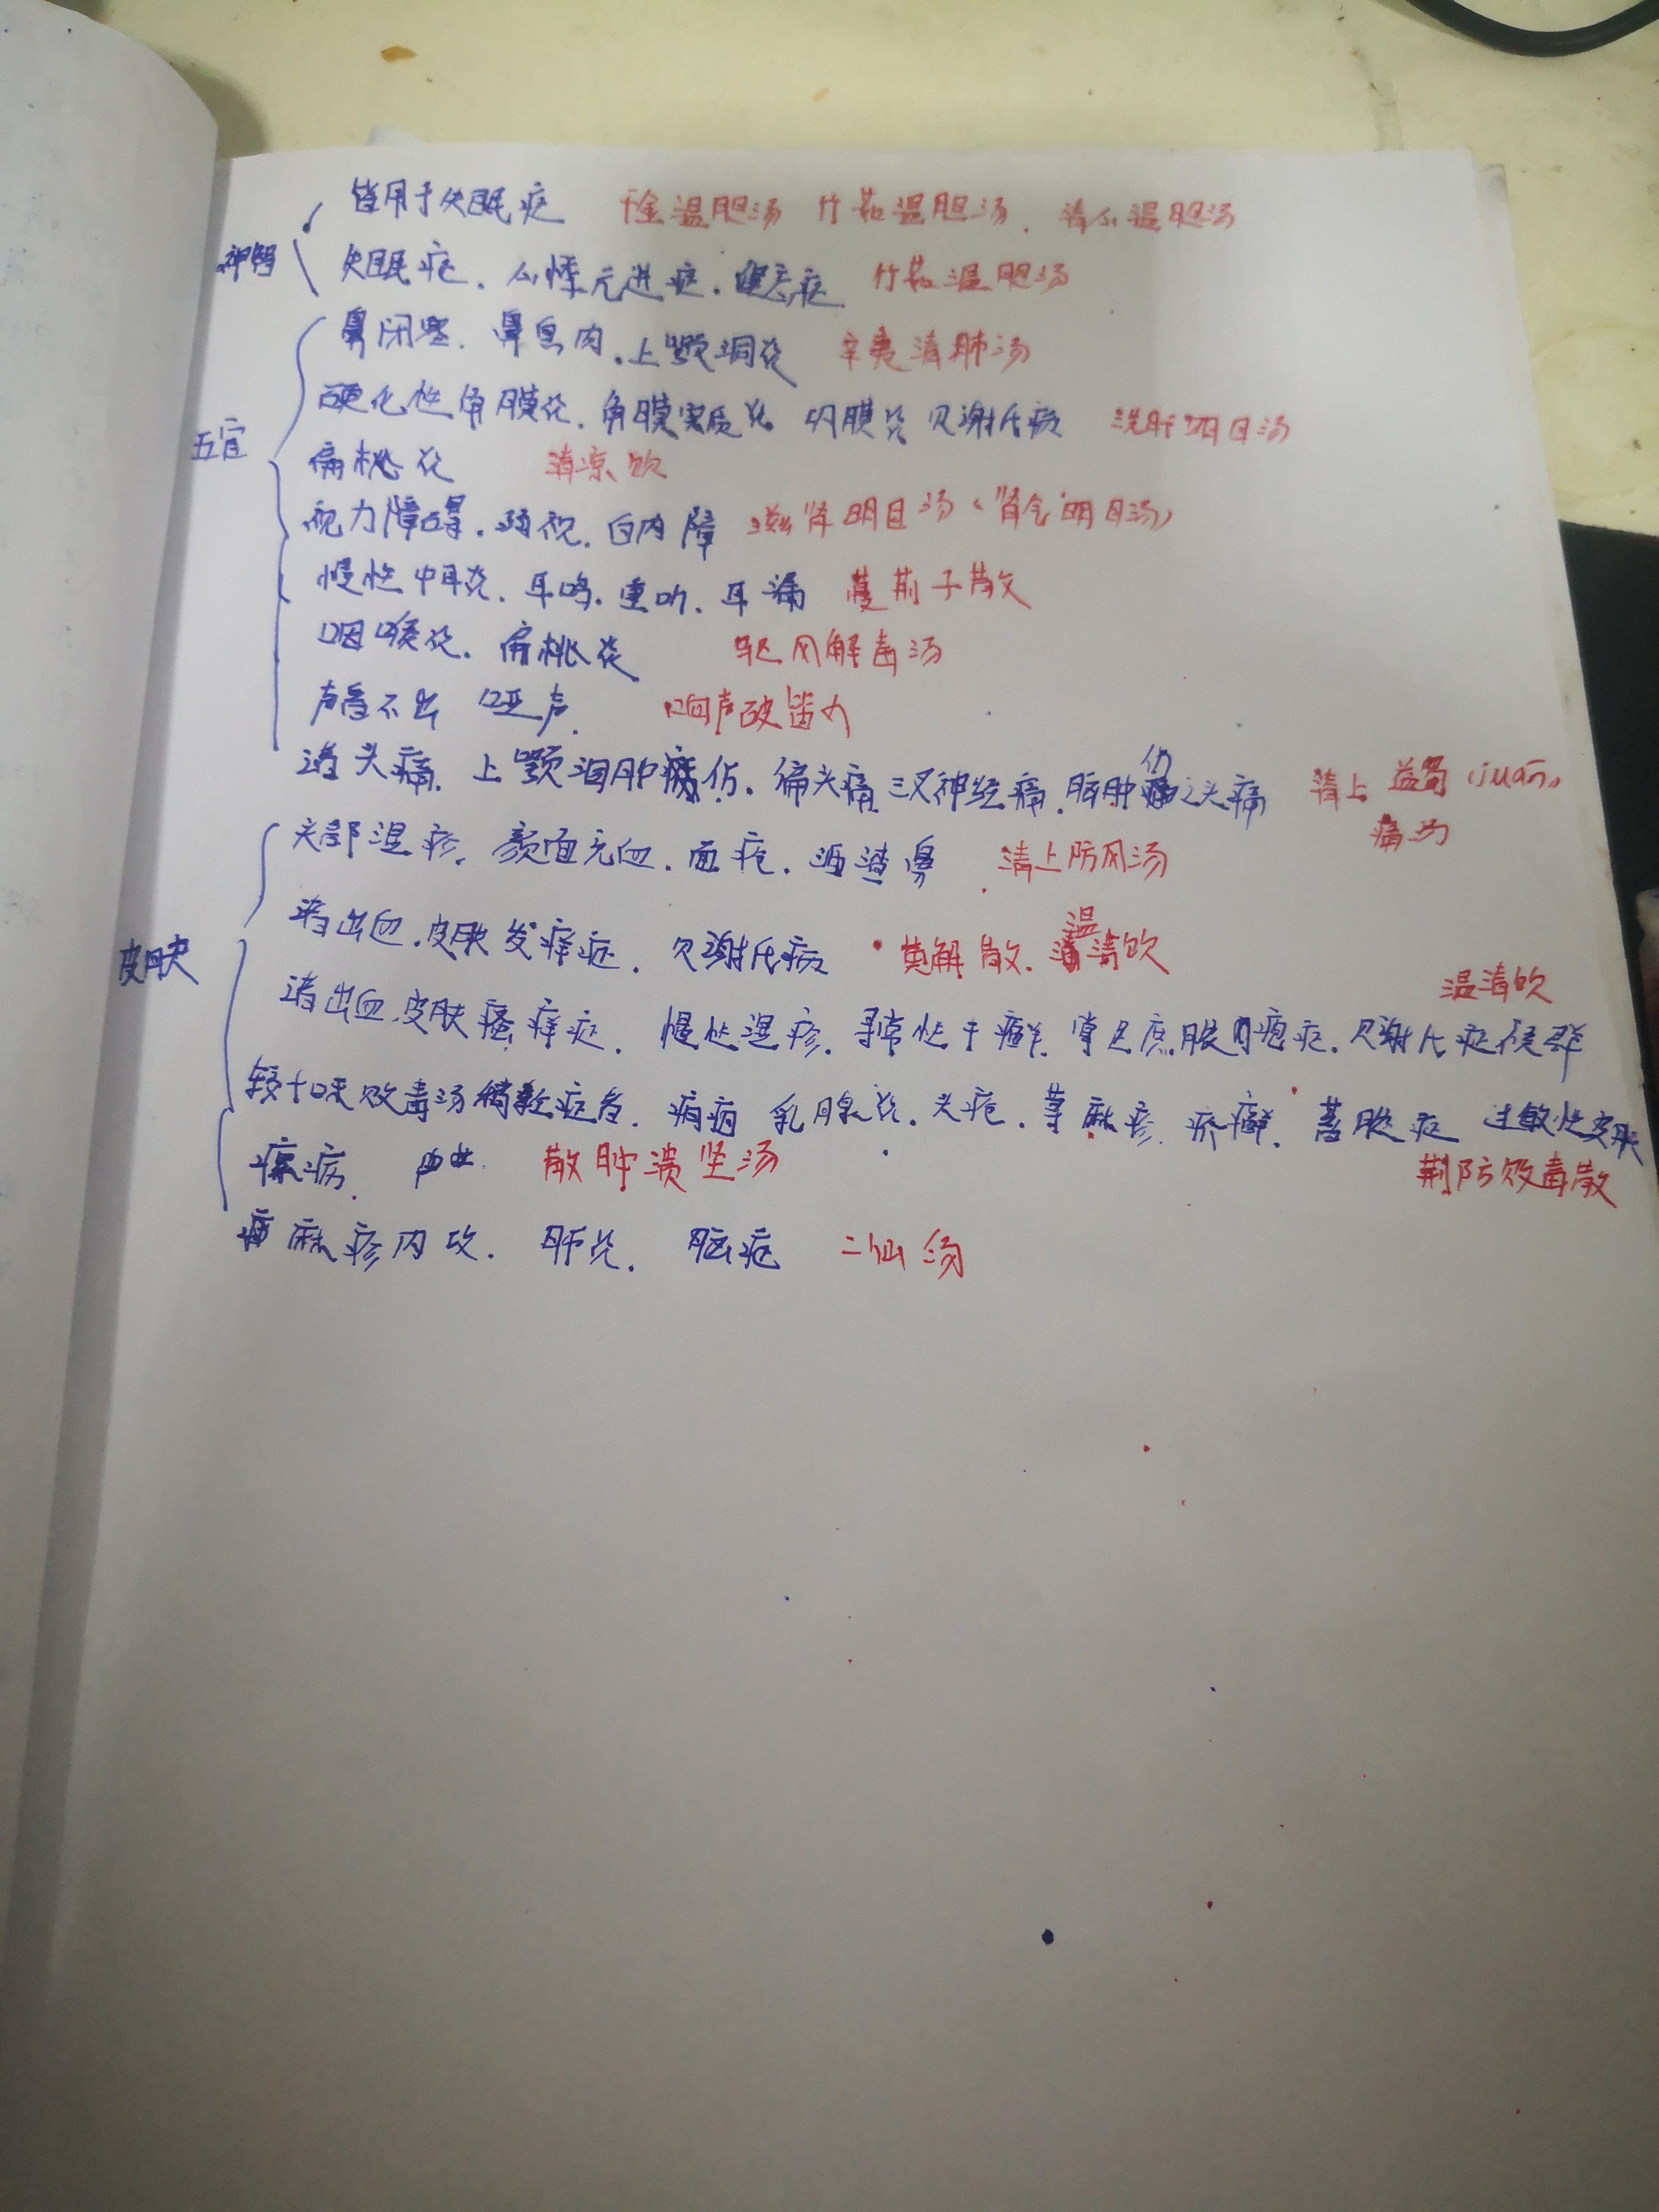 皆用于失眠症 千金温胆汤 竹茹温胆汤. 清心温胆汤
神经
失眠症. 心悸亢进症. 健忘症. 竹茹温胆汤
鼻闭塞. 鼻息肉. 上颚洞炎 辛夷清肺汤
硬化性角膜炎. 角膜实质炎 贝谢氏病 洗肝明目汤
五官
扁桃炎 清凉饮
视力障碍. 弱视. 白内障 滋肾明目汤（肾气明目汤）
慢性中耳炎. 耳鸣. 重听. 耳漏 蔓荆子散
咽喉炎. 扁桃炎 驱风解毒汤
声音不出 哑声. 响声破笛丸
头痛. 上颚洞肿疡伤. 偏头痛 三叉神经痛. 脑肿伤之头痛 清上益蠲（juān）
痛汤
头部湿疹. 颜面充血. 面疮. 酒渣鼻 清上防风汤
诸出血. 皮肤发痒症. 贝谢氏病 黄解散. 温清饮
皮肤
温清饮
诸出血. 皮肤瘙痒症. 慢性湿疹. 寻常性干癣. 掌足庶脓疱症. 贝谢氏症候群
较十味败毒汤 症者. 乳腺炎. 头疮. 荨麻疹. 疥癣. 蓄脓症 过敏性皮肤
瘰病. 散肿溃坚汤 荆防败毒散
麻疹内攻. 肺炎. 脑症 二仙汤